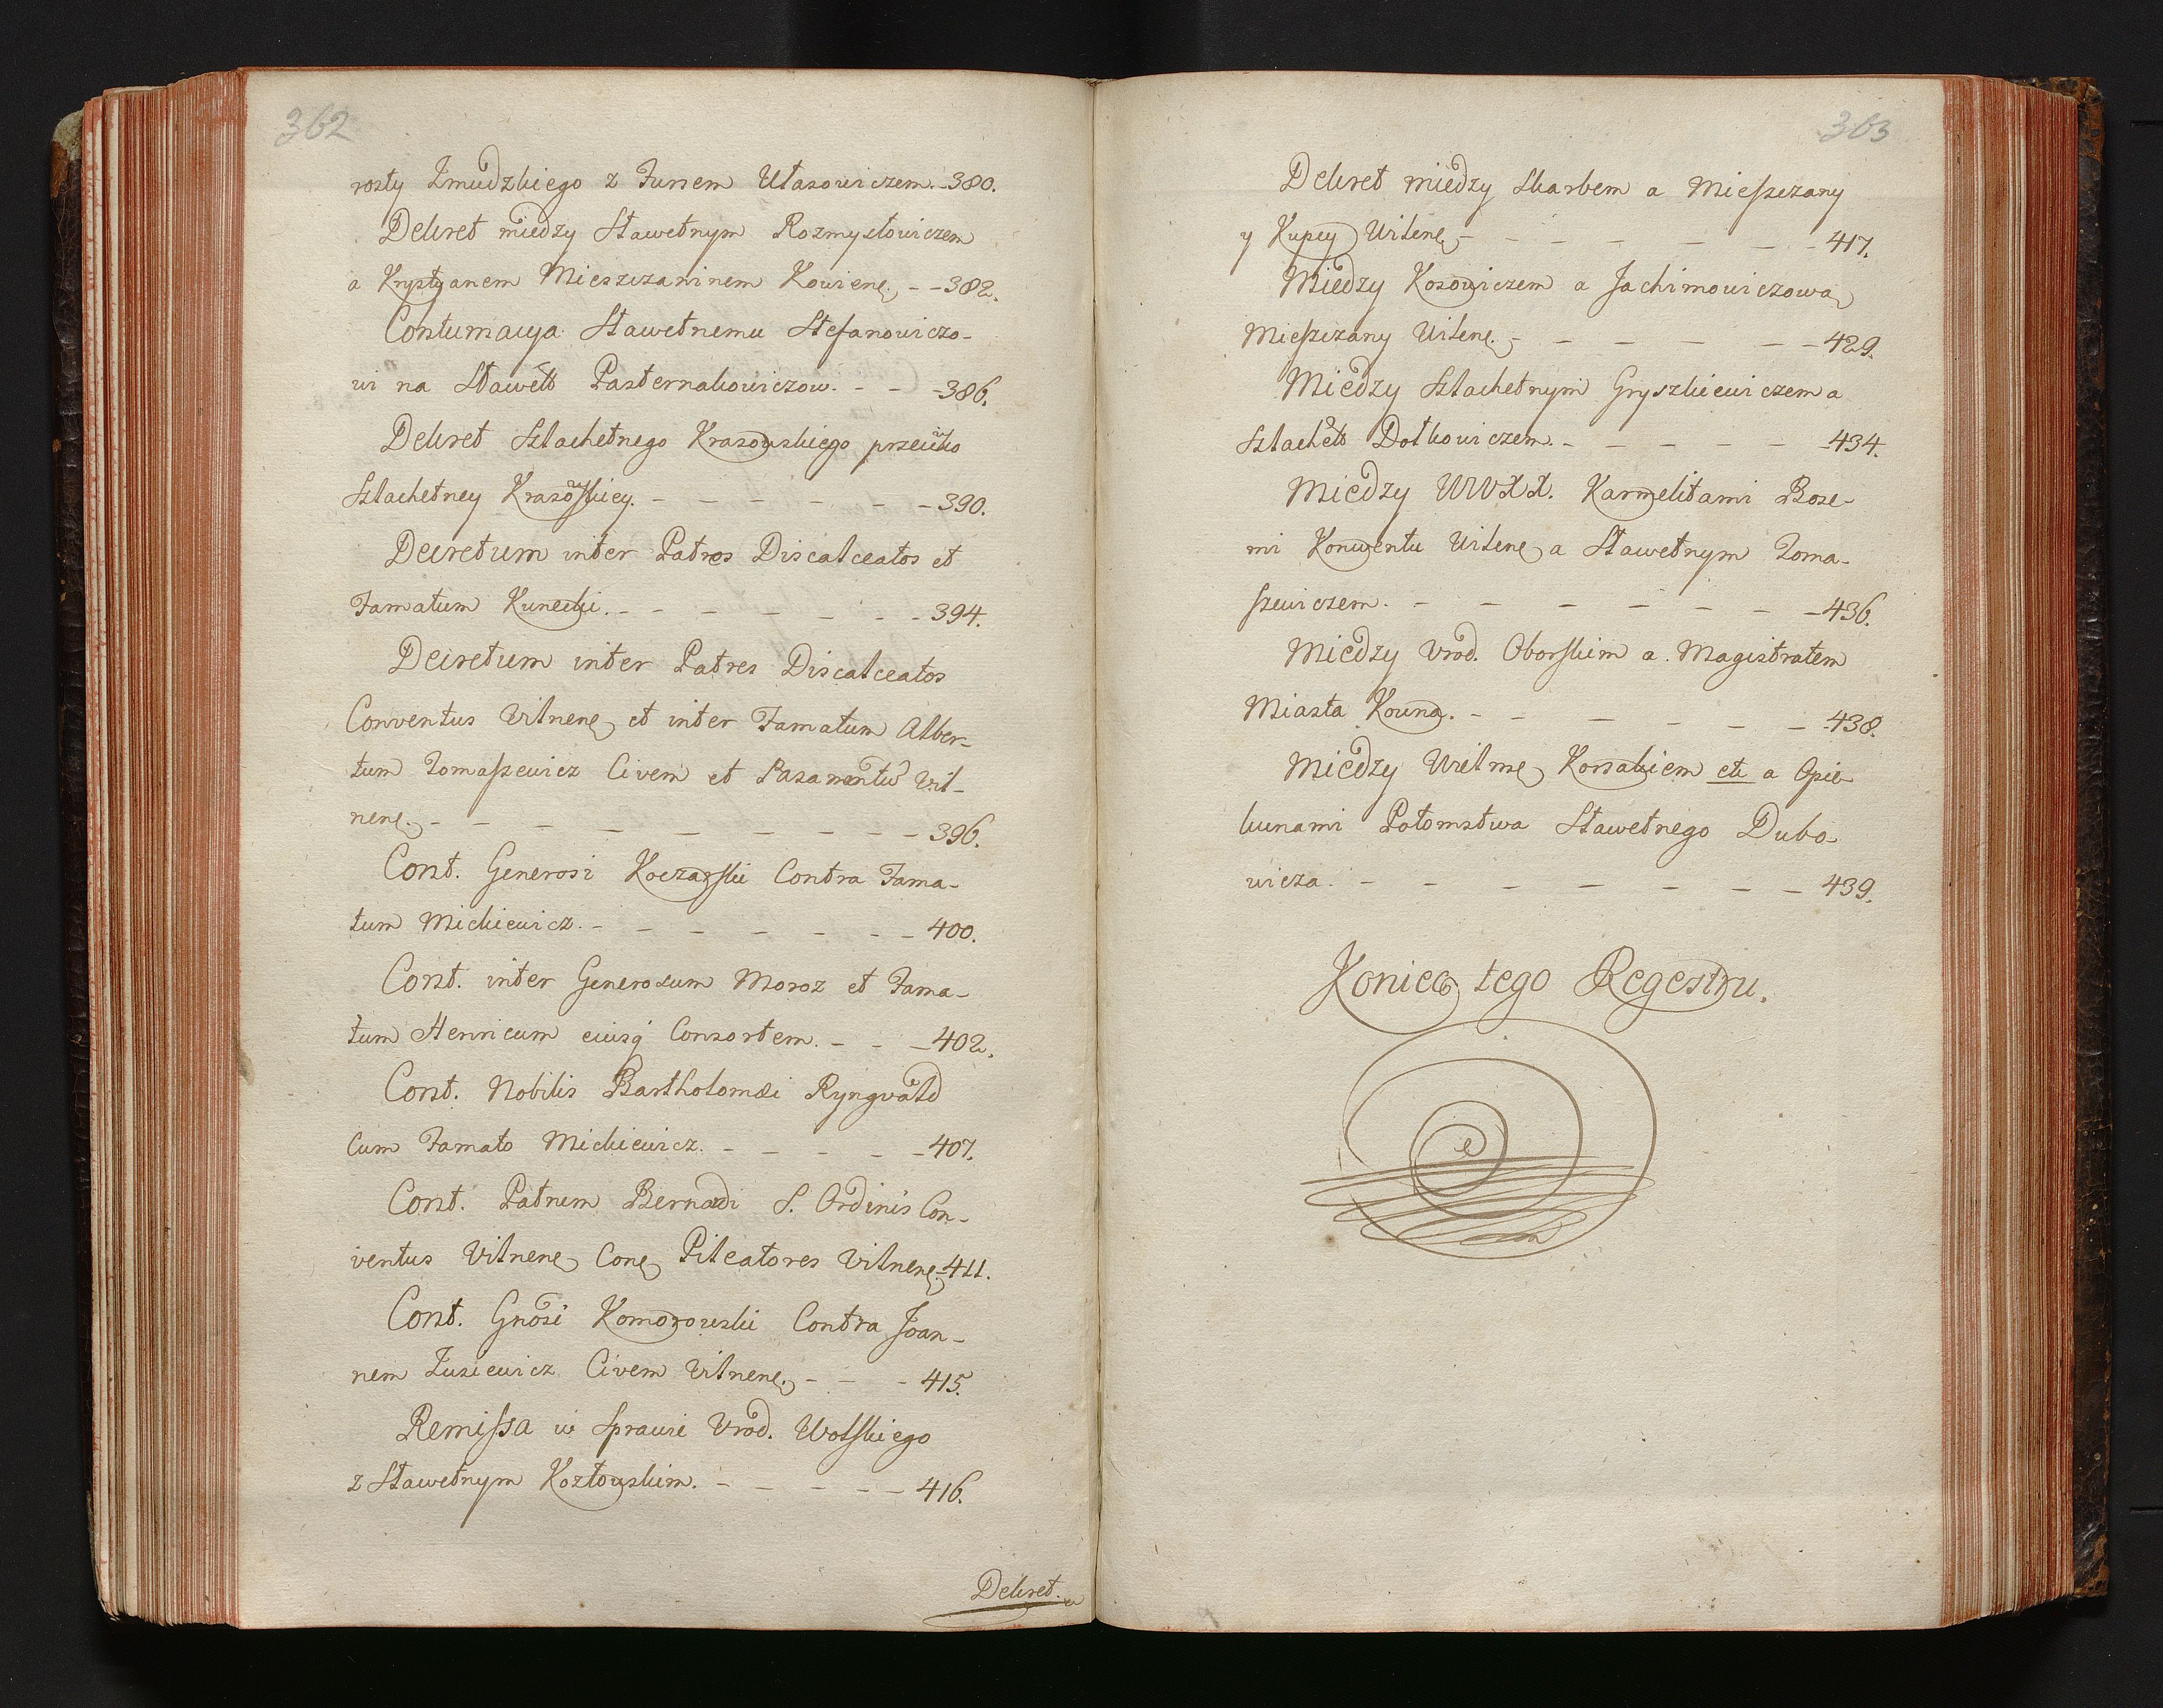 362
rosty Zmudzkiego z Jursem Ułasowiczem. - 380.
Dekret między Sławetnym Rozmysłowiczem
a Krystyanem Mieszczaninem Kowienę. - - 382.
Contumacya Sławetnemu Stefanowiczo-
wi na Sławett Pasternakowiczow. - - - 386.
Dekret Szlachetnego Krasowskiego przeciwko
Szlachetney Krasoskiey. - - - - - - 390.
Decretum inter Patres Discalceatos et
Famatum Kunecki. - - - - - - - 394.
Decretum inter Patres Discalceatos
Conventus Vilnenę et inter Famatum Alber-
tum Tomaſzewicz Civem et Pasamentũ Vil-
nenę. - - - - - - - - - 396.
Cont. Generosi Koczarſki Contra Fama-
tum Mickiewicz. - - - - - - - 400.
Cont. inter Generosum Moroz et Fama-
tum Henricum eiusq Consortem. - - - 402.
Cont. Nobilis Bartholomæi Ryngvald
Cum Famato Mickiewicz. - - - - - 407.
Cont. Patrum Bernardi S. Ordinis Con-
ventus Vilnenę Conę Pileatores Vilnenę - 411.
Cont. Gnosi Komorowski Contra Joan-
nem Zusiewicz Civem Vilnenę. - - - 415.
Remiſsa w Sprawie Urod. Wolſkiego
z Sławetnym Kozłowskim. - - - - - 416.
Dekret.
363
Dekret między Skarbem a Mieſzczany
y Kupcy Wilenę - - - - - - - 417.
Między Kosowiczem a Jachimowiczową
Mieſzczany Wilenę. - - - - - - 429.
Między Szlachetnym Gryszkiewiczem a
Szlachett Dołkowiczem. - - - - - 434.
Między WWXX. Karmelitami Bose-
mi Konwentu Wilenę a Sławetnym Toma-
ſzewiczem. - - - - - - - 436.
Między Urod. Oborſkim a Magistratem
Miasta Kowna. - - - - - - 438.
Między Wielmę Korsakiem etc a Opie-
kunami Potomstwa Sławetnego Dubo-
wicza. - - - - - - - 439.
Koniec tego Regestru.